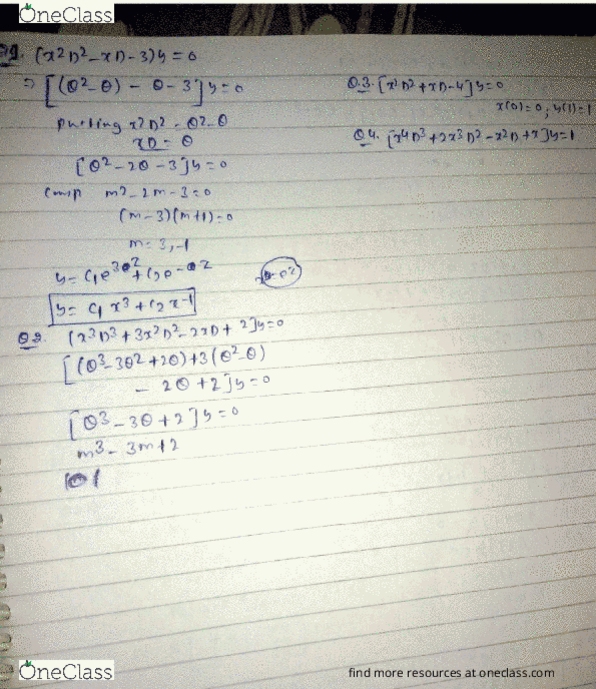 OneClass
Q1. (x²D² - xD - 3)y = 0
⇒ [(θ² - θ) - θ - 3]y = 0
putting x²D² = θ² - θ
xD = θ
[θ² - 2θ - 3]y = 0
m² - 2m - 3 = 0
(m - 3)(m + 1) = 0
m = 3, -1
y = C₁e³ᶻ + C₂e⁻ᶻ
y = C₁x³ + C₂x⁻¹
Q2. [x³D³ + 3x²D² - 2xD + 2]y = 0
[(θ³ - 3θ² + 2θ) + 3(θ² - θ)
- 2θ + 2]y = 0
[θ³ - 3θ + 2]y = 0
m³ - 3m + 2
Q.3. [x²D² + xD - 4]y = 0
x(0) = 0, y(1) = 1
Q4. [x⁴D³ + 2x³D² - x²D + x]y = 1
OneClass
find more resources at oneclass.com